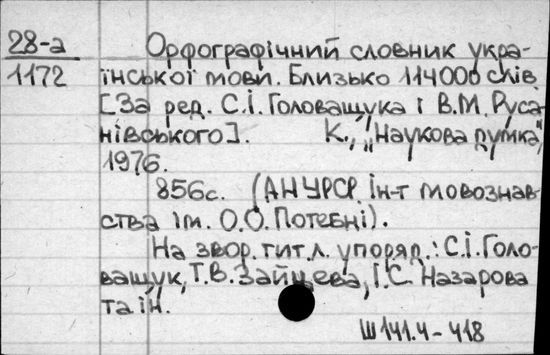 28-а
1172
Орфографічний словник укра-
їнської мови. Близько 114000 слів
[За ред. С.І. Головащука і В.М. Руса-
нівського]. К., "Наукова думка",
1976.
856с. (АН УРСР. Ін-т мовознав-
ства ім. О.О. Потебні).
На звор. тит. л. упоряд.: С.І. Голо-
ващук, Т.В. Зайцева, І.С. Назарова
та ін.
Ш141.4-418